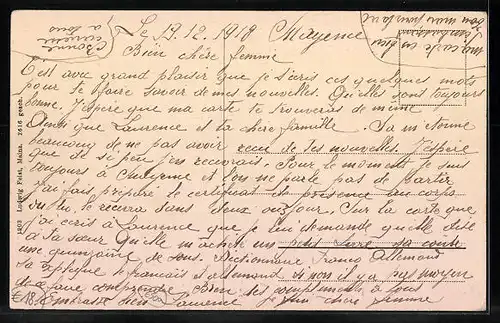 Bonne
année
à tous
Le 19.12.1918 Mayence
Bien chère femme
C'est avec grand plaisir que je t'écris ces quelques mots
pour te faire savoir de mes nouvelles. Qu'elles sont toujours
bonne. J'espère que ma carte te trouveras de même
Ainsi que Laurence et ta chère famille. Sa m'étonne
beaucoup de ne pas avoir recu de tes nouvelles. J'espère
que de si peu j'en recevrais. Pour le moment je suis
toujours à Mayence et l'on ne parle pas de partir
J'ai fais préparé le certificat de présence au corps
tu le recevra dans deux ou jour. Sur la carte que
j'ai écris à Laurence que je lui demande qu'elle dise
à sa sœur qu'elle m'achète un petit livre sa coute
une quinzaine de sous. Dictionnaire Franco Allemand
Sa explique le francais et allemand si non il y a pas moyen
de se faire comprendre. Bien des compliments à tous
Embrasse bien Laurence je suis chère femme
1803 Ludwig Feist, Mainz. 3616 gesch.
£18